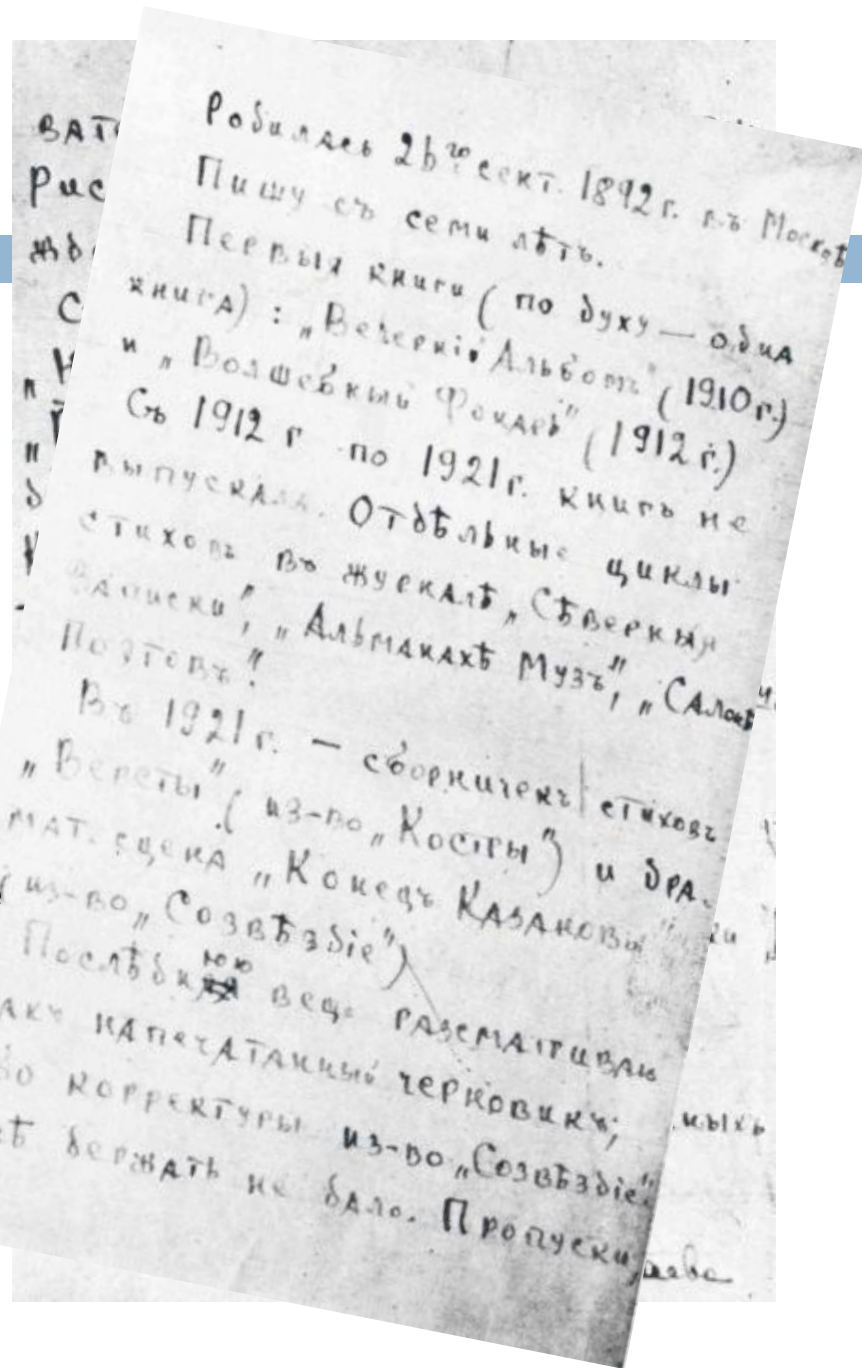 ВАТ
Рис
Родилась 26го сент. 1892г. въ Москвѣ
Пишу съ семи лѣтъ.
Первыя книги (по духу — одна
книга) : „Вечерній Альбомъ" (1910г.)
и „Волшебный Фонарь" (1912г.)
Съ 1912 г по 1921г. книгъ не
выпускала. Отдѣльные циклы
стиховъ въ журналѣ „Сѣверныя
Записки", „Альманахѣ Музъ", „Салонѣ
Поэтовъ".
Въ 1921г. — сборничекъ стиховъ
„Версты" (из-во „Костры") и дра-
мат. сцена „Конецъ Казановы"
(из-во „Созвѣздіе")
Послѣднюю вещь разсматриваю
акъ напечатанный черновикъ;
во корректуры из-во „Созвѣздіе"
ѣ держать не дало. Пропуски,
ныхъ
аева